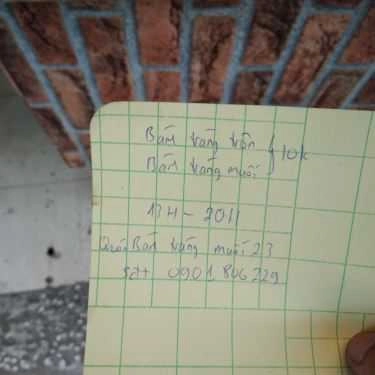 Bán tráng trộn } 10k
Bán tráng muối
13H - 20H
Quán Bán tráng muối 23
sđt 0901 806 229